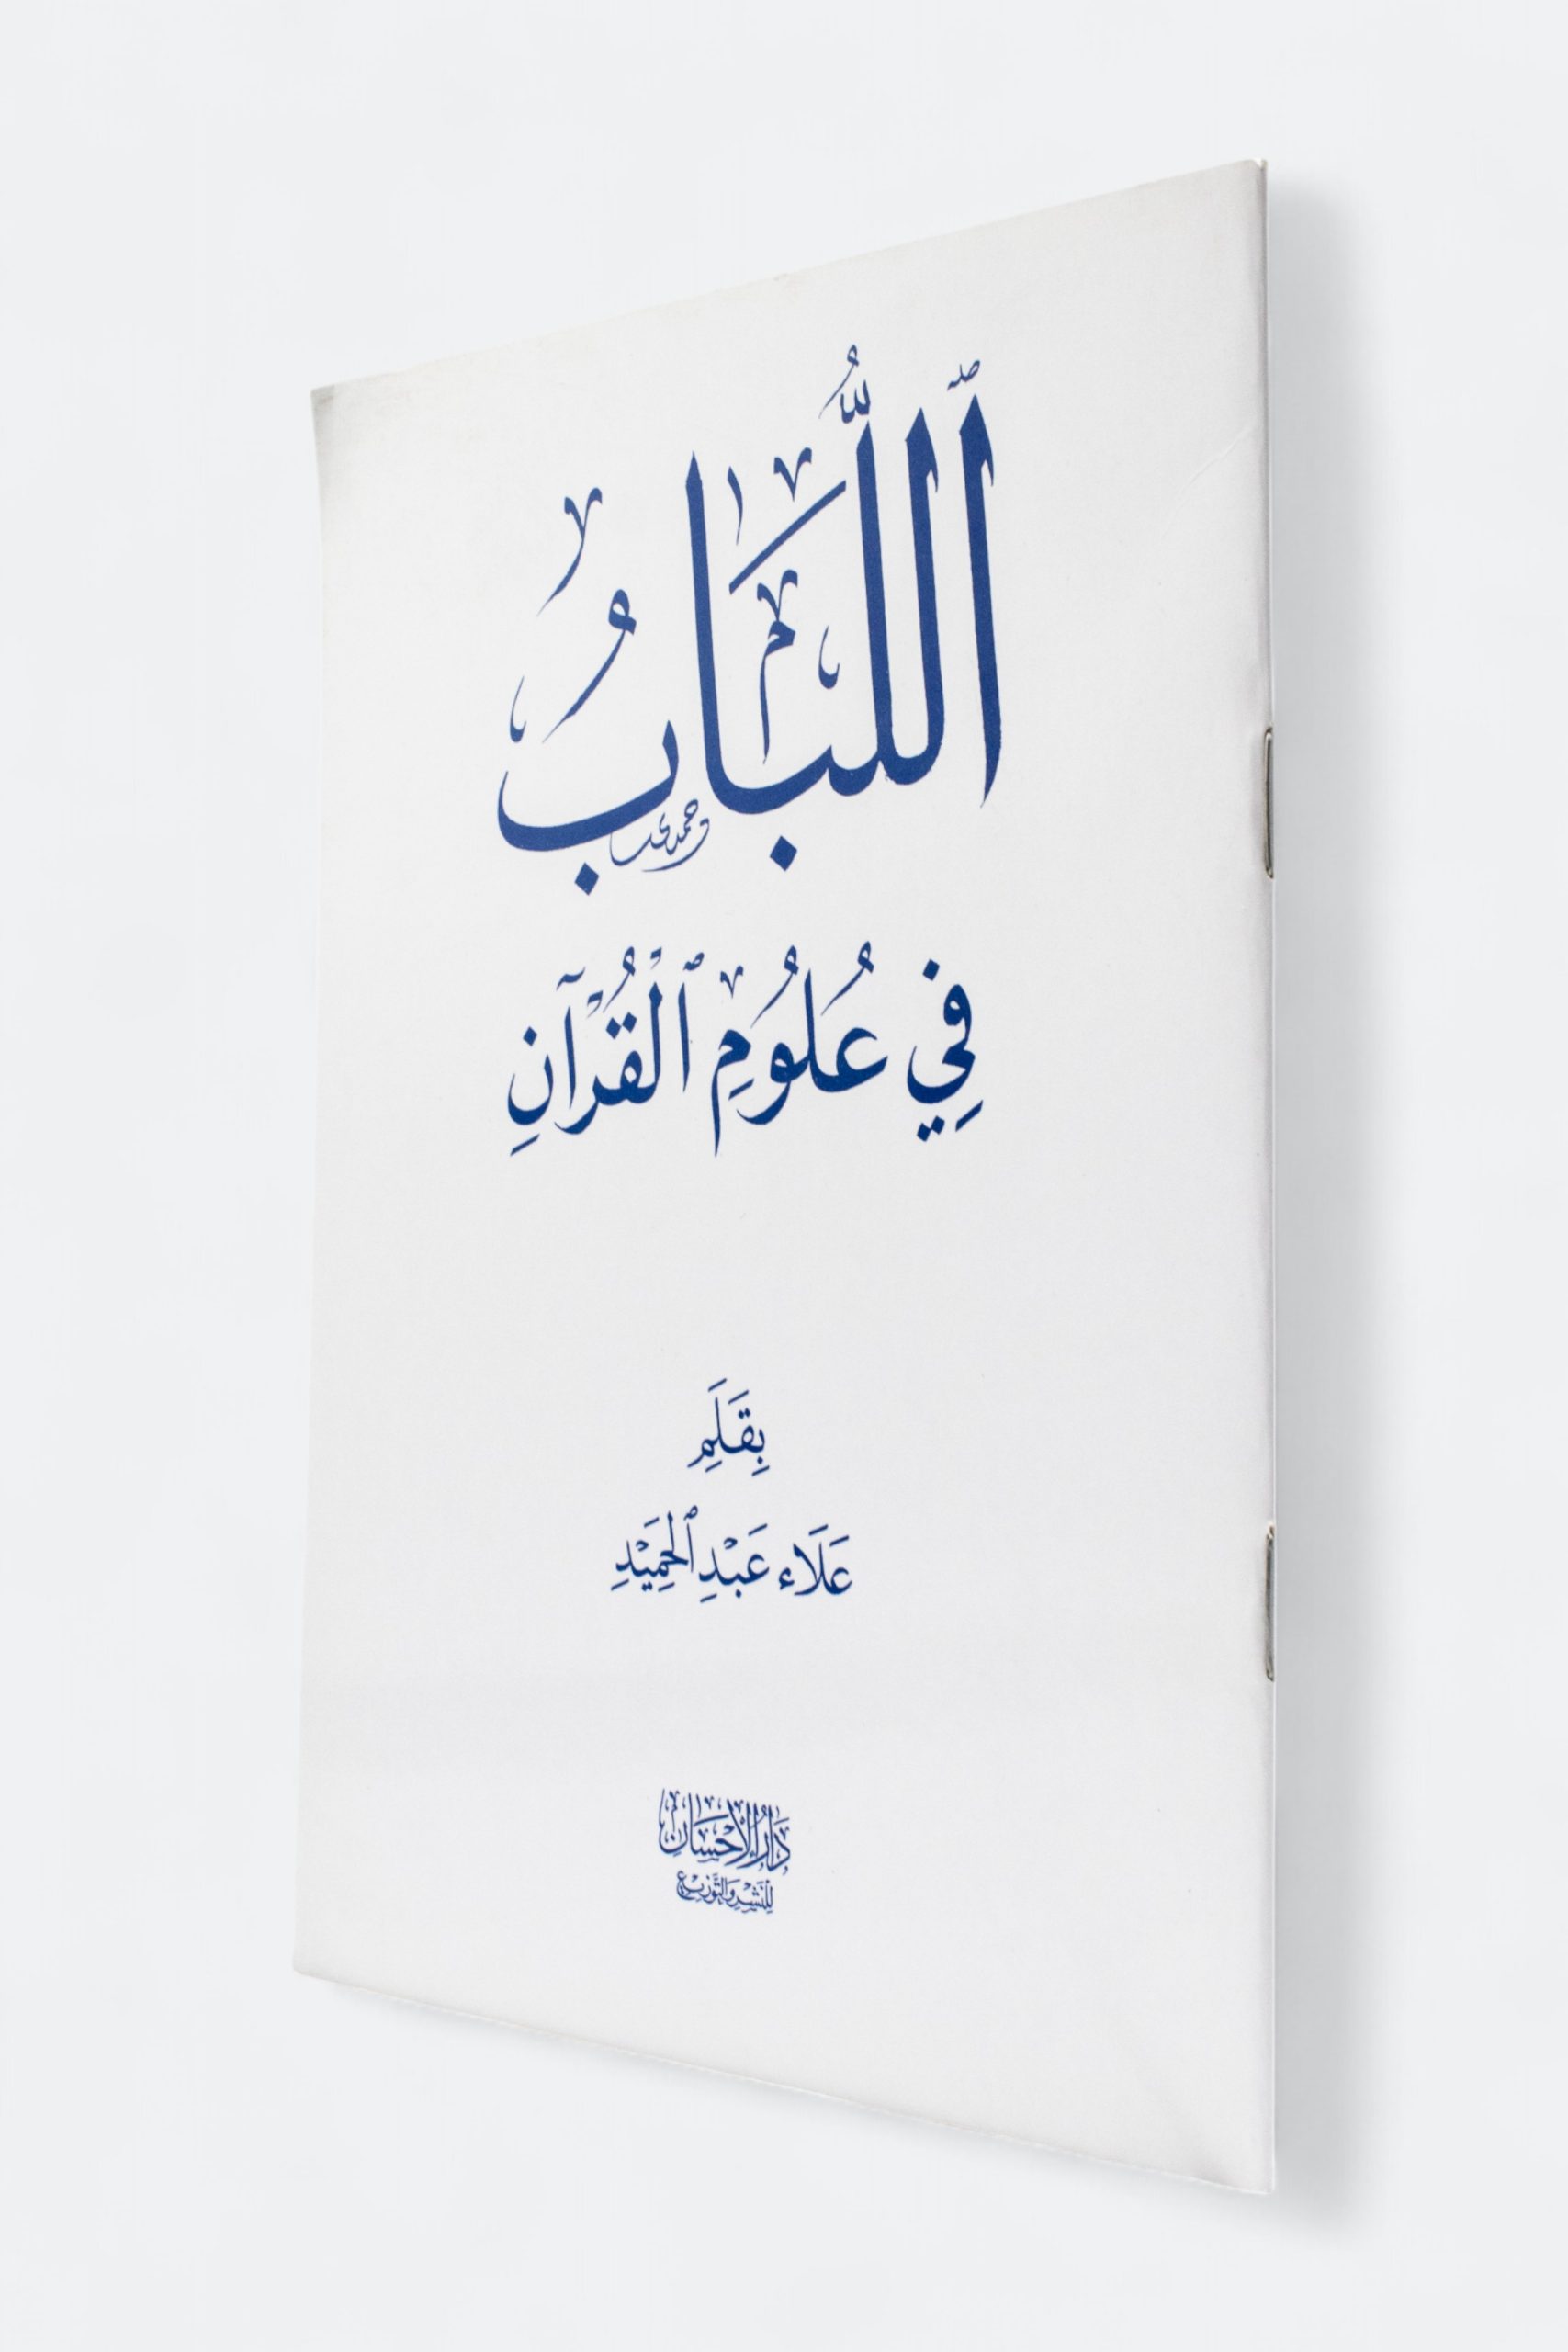 ٱللُّبَابُ
فِي عُلُومِ ٱلْقُرْآنِ
بِقَلَمِ
عَلَاء عَبْدِ ٱلْحَمِيْدِ
دَارُ الْإِحْسَانِ
لِلنَّشْرِ وَالتَّوْزِيعِ